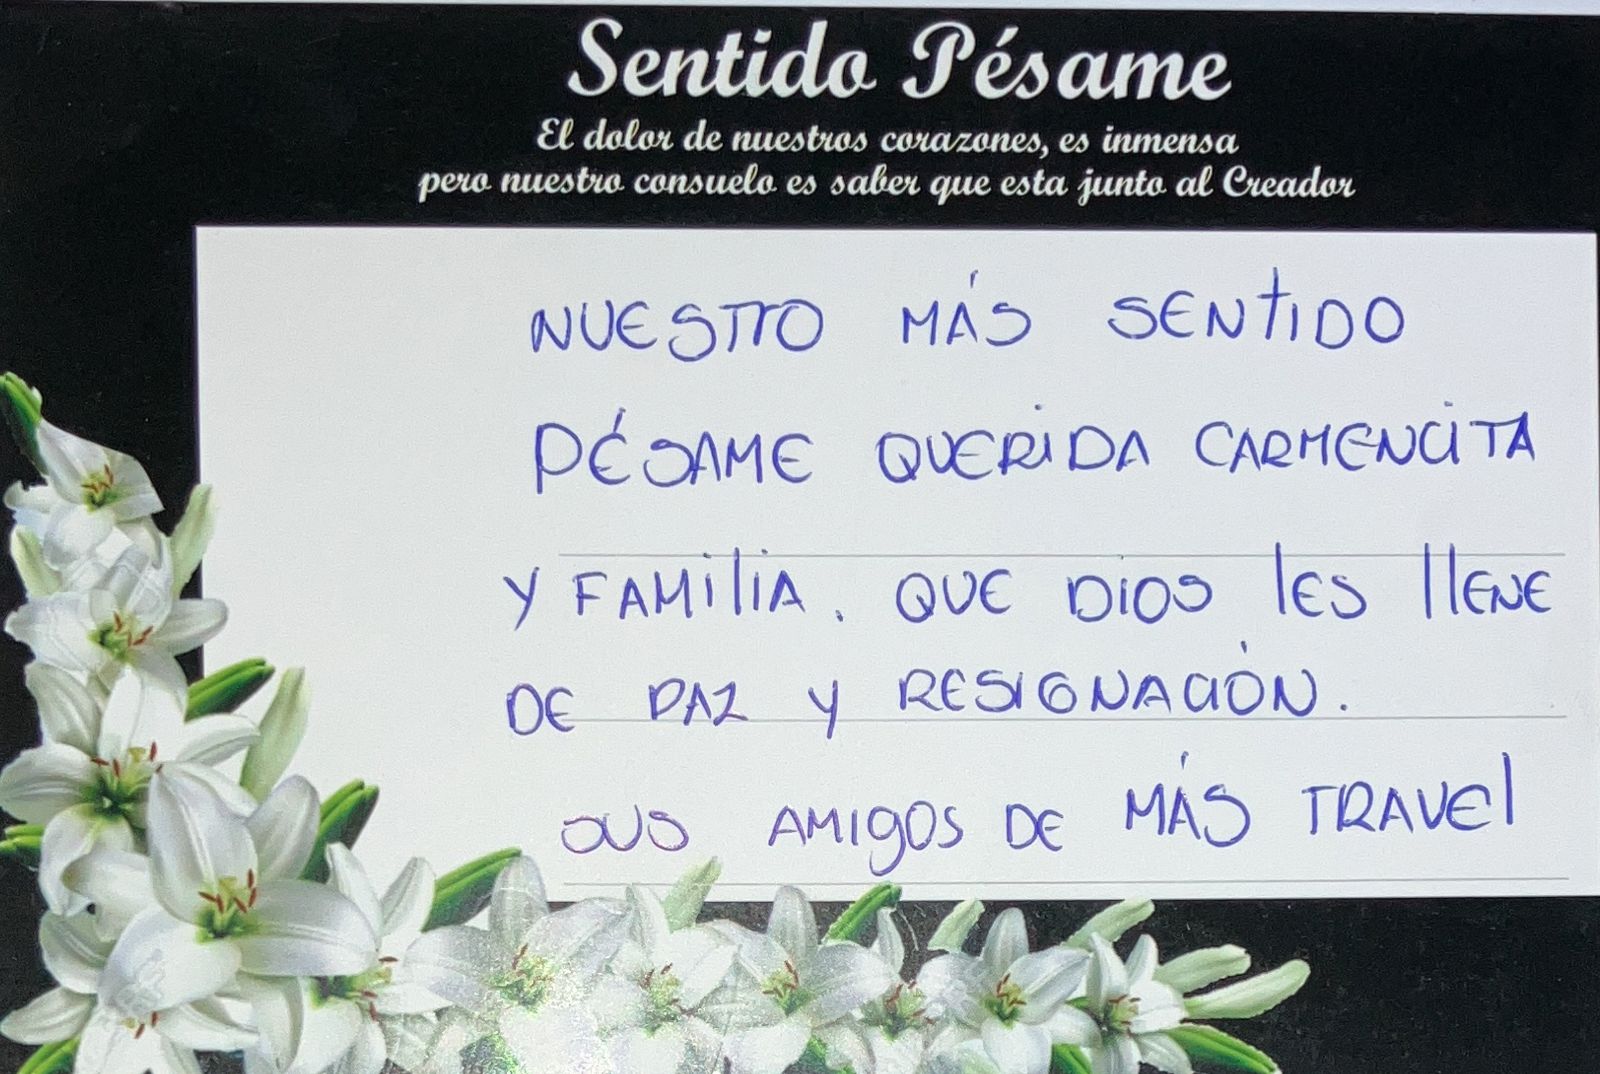 Sentido Pésame
El dolor de nuestros corazones, es inmensa
pero nuestro consuelo es saber que esta junto al Creador
NUESTRO MÁS SENTIDO
PÉSAME QUERIDA CARMENCITA
Y FAMILIA. QUE DIOS LES LLENE
DE PAZ Y RESIGNACIÓN.
SUS AMIGOS DE MÁS TRAVEL